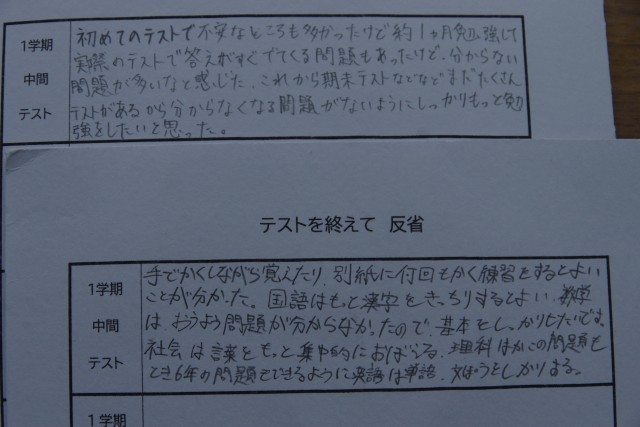 1学期
中間
テスト
初めてのテストで不安なところも多かったけど約1ヵ月勉強して
実際のテストで答えがすぐでてくる問題もあったけど、分からない
問題が多いなと感じた。これから期末テストなどなどまだたくさん
テストがあるから分からなくなる問題がないようにしっかりもっと勉
強をしたいと思った。
テストを終えて 反省
1学期
中間
テスト
手でかくしながら覚えたり、別紙に何回もかく練習をするとよい
ことが分かった。国語はもっと漢字をきっちりするとよい、数学
は、おうよう問題が分からなかったので、基本をしっかりしたいです。
社会は言葉をもっと集中的におぼえる。理科はかこの問題も
とき6年の問題もできるように英語は単語、文ぽうをしっかりする。
1学期